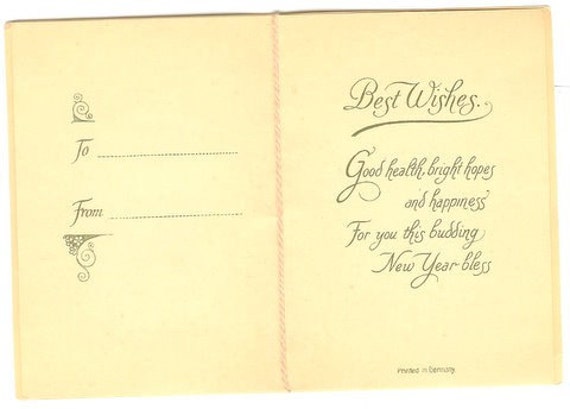 To
From
Best Wishes.
Good health, bright hopes
and happiness
For you this budding
New Year bless
Printed in Germany